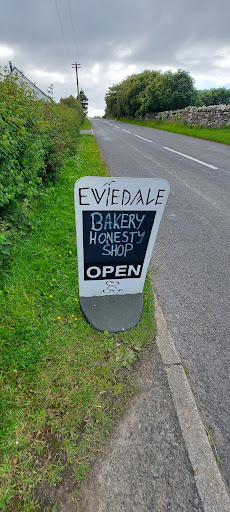 EVIEDALE
BAKERY
HONESTY
SHOP
OPEN